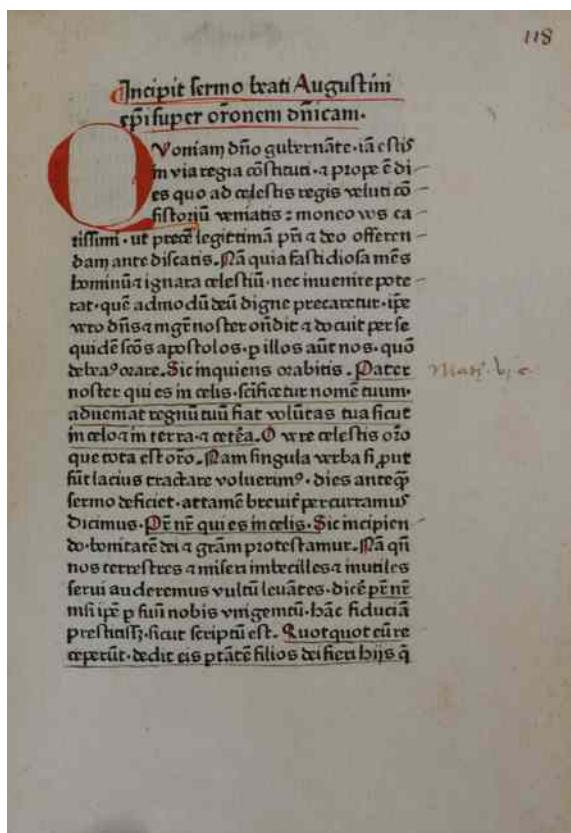 118
Incipit sermo beati Augustini
ep̄i super or̄onem dn̄icam.
QVoniam dn̄o gubernāte·iā estis
in via regia cōstituti·⁊ prope ē di
es quo ad celestis regis veluti cō
sistoriū veniatis: moneo vos ca
rissimi·ut precē legittimā pr̄i ⁊ deo offeren
dam ante discatis. Nā quia fastidiosa mēs
hominū ⁊ ignara celestiū·nec invenire pote
rat·quē admodū deū digne precaretur·ip̄e
vero dn̄s ⁊ mgr̄ noster on̄dit ⁊ docuit per se
quidē scōs apostolos·p illos aūt nos·quō
debeaꝰ orare. Sic inquiens orabitis. Pater
noster qui es in celis·sc̄ificetur nomē tuum·
adueniat regnū tuū fiat volūtas tua sicut
in celo ⁊ in terra·⁊ cetēa. O vere celestis or̄o
que tota est or̄o. Nam singula verba si put
sūt lacius tractare voluerimꝰ·dies anteqꝫ
sermo deficiet·attamē brevit̄ percurramus
dicimus. Pr̄ nr̄ qui es in celis. Sic incipien
do·bonitatē dei ⁊ grām protestamur. Nā qn̄
nos terrestres ⁊ miseri imbecilles ⁊ inutiles
serui auderemus vultū leuātes·dicē pr̄ nr̄
nisi ip̄e p fiuū nobis vnigenitū·hāc fiduciā
prestitissꝫ·sicut scriptū est. Quotquot eū re
ceperūt·dedit eis ptātē filios dei fieri hijs q̄